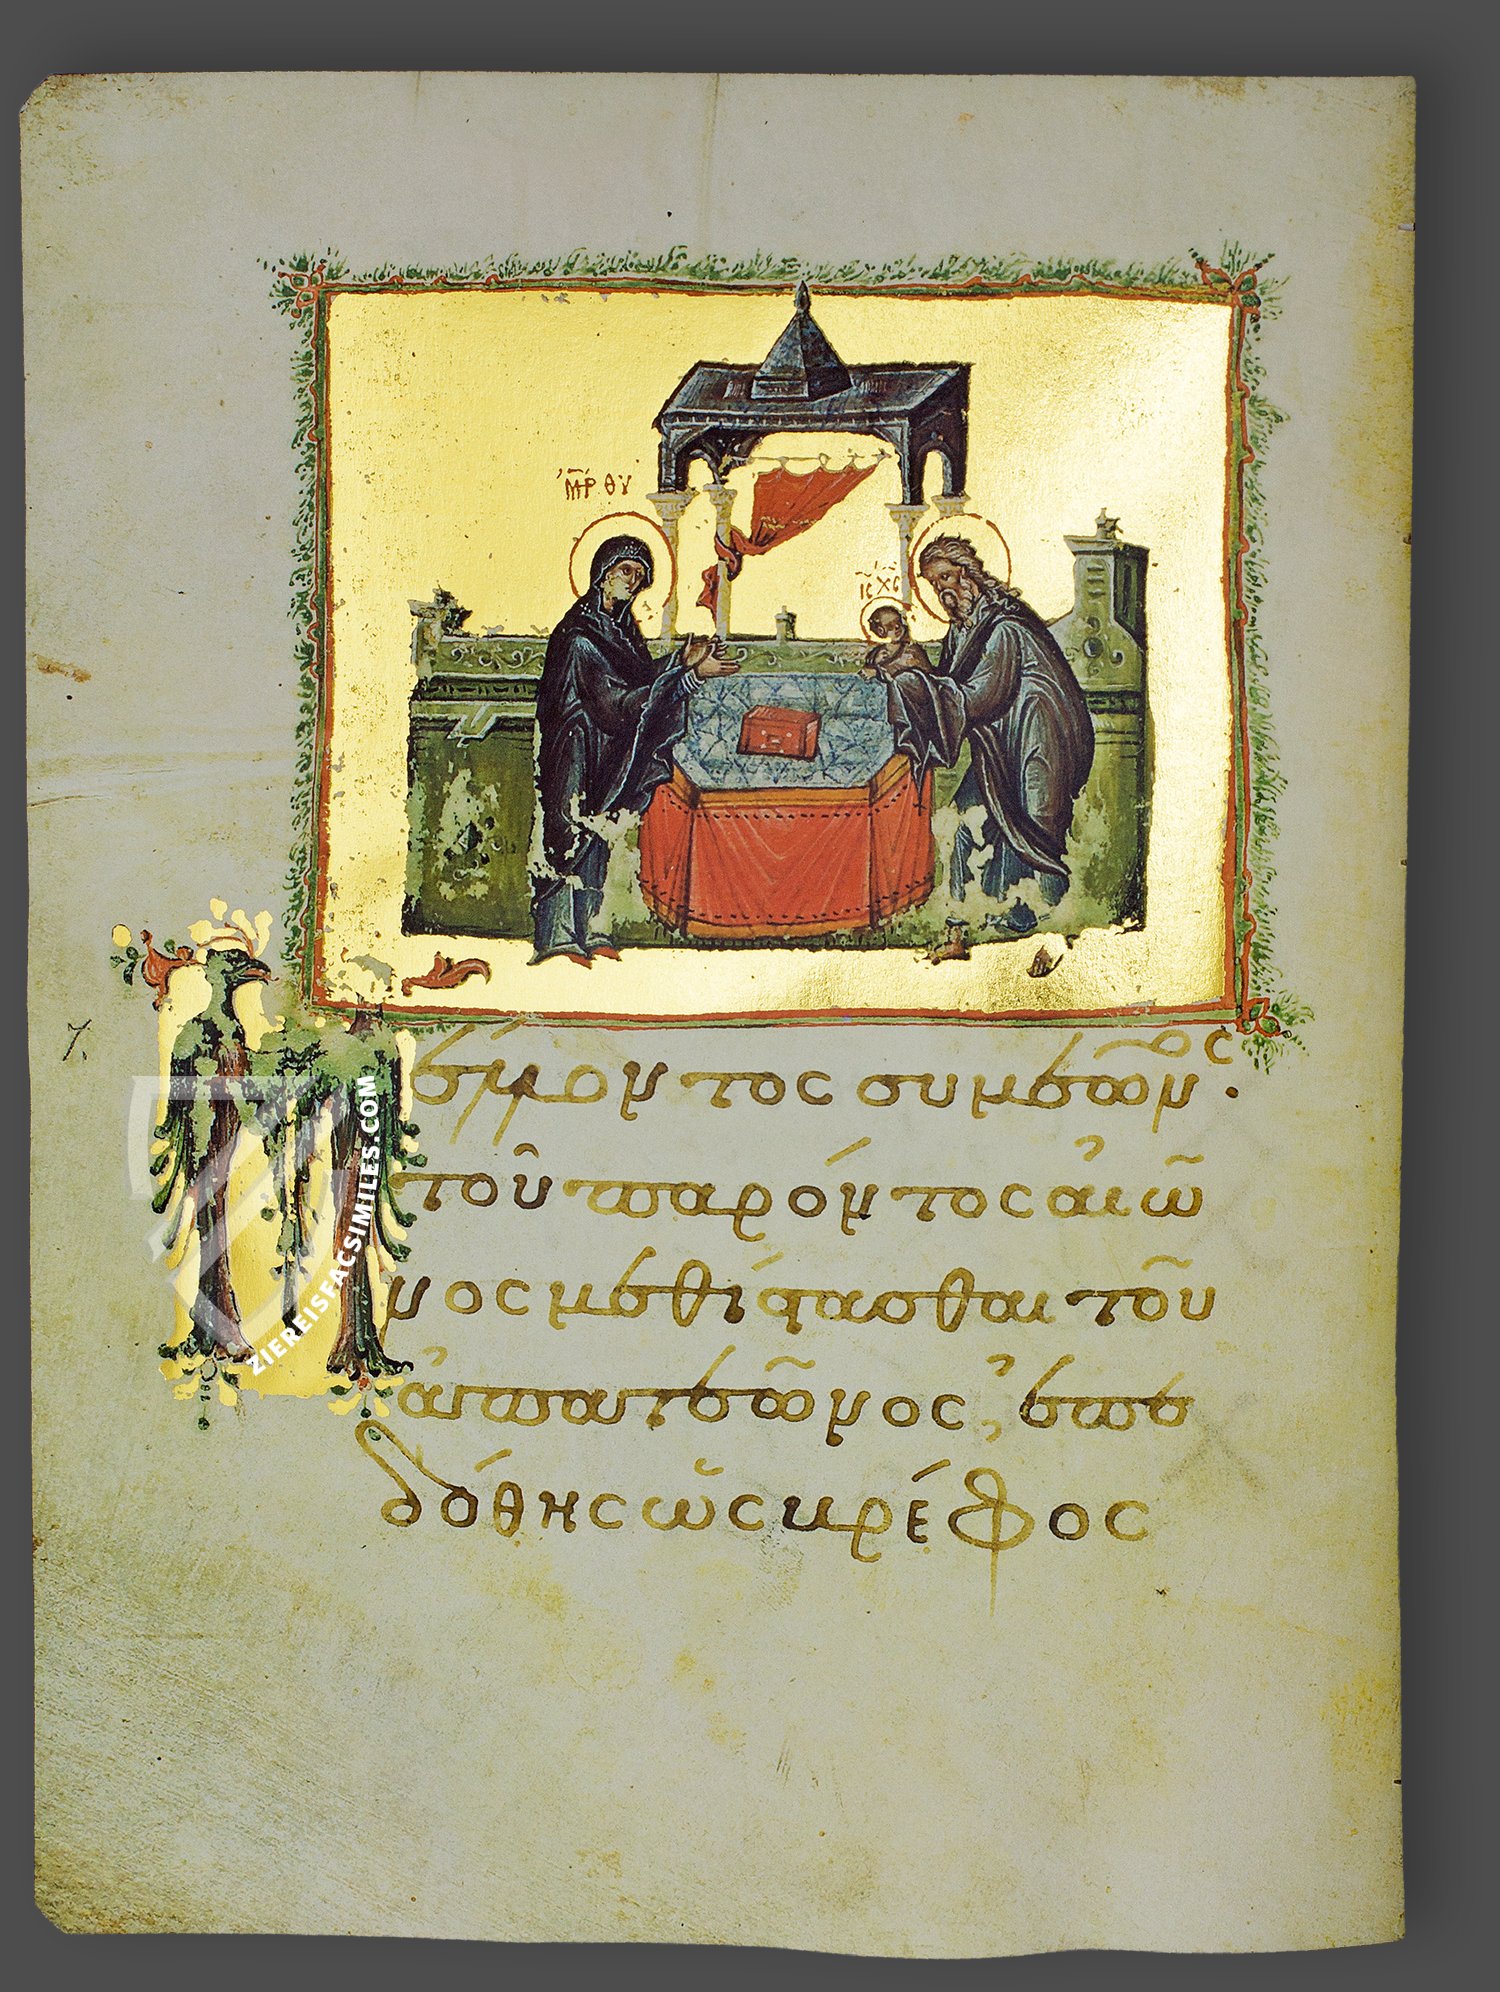 ΜΡ ΘΥ
ΙϹ ΧϹ
Μέλλοντος συμεῶνος
τοῦ παρόντος αἰῶ
νος μεθίστασθαι τοῦ
ἀπατεῶνος, ἐπε
δόθης ὡς βρέφος
ZIEREISFACSIMILES.COM